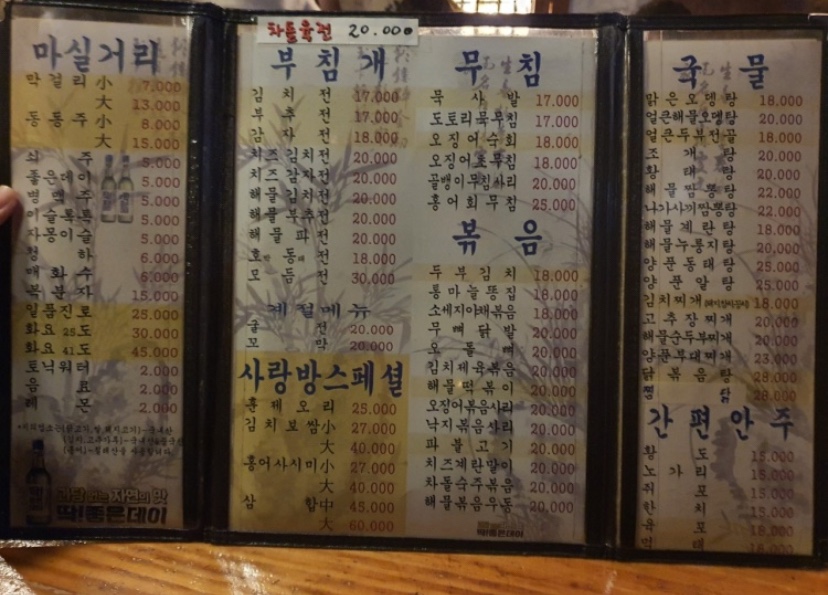 마실거리
막걸리 小 7.000
大 13.000
동동주 小 8.000
大 15.000
소주 5.000
좋은데이 5.000
맥주 5.000
이슬톡톡 5.000
자몽이슬 5.000
청하 6.000
매화수 6.000
복분자 15.000
일품진로 25.000
화요 25도 30.000
화요 41도 45.000
토닉워터 2.000
음료 2.000
레몬 2.000
딱!좋은데이
차돌육전 20.000
부침개
김치전 17.000
부추전 17.000
감자전 18.000
치즈김치전 20.000
치즈감자전 20.000
해물김치전 20.000
해물부추전 20.000
해물파전 20.000
호박동래전 18.000
모듬전 30.000
계절메뉴
굴전 20.000
꼬막 20.000
사랑방스페셜
훈제오리 25.000
김치보쌈小 27.000
大 40.000
홍어사시미小 27.000
大 40.000
삼합中 45.000
大 60.000
무침
묵사발 17.000
도토리묵무침 17.000
오징어숙회 18.000
오징어초무침 18.000
골뱅이무침사리 20.000
홍어회무침 25.000
볶음
두부김치 18.000
통마늘똥집 18.000
소세지야채볶음 18.000
무뼈닭발 20.000
오돌뼈 20.000
김치제육볶음 20.000
해물떡볶이 20.000
오징어볶음사리 20.000
낙지볶음사리 20.000
파불고기 20.000
치즈계란말이 20.000
차돌숙주볶음 20.000
해물볶음우동 20.000
딱!좋은데이
국물
맑은오뎅탕 18.000
얼큰해물오뎅탕 20.000
얼큰두부전골 18.000
조개탕 20.000
황태탕 20.000
해물짬뽕탕 22.000
나가사끼짬뽕탕 22.000
해물계란탕 20.000
해물누룽지탕 20.000
양푼동태탕 25.000
양푼알탕 25.000
김치찌개 18.000
고추장찌개 20.000
해물순두부찌개 20.000
양푼부대찌개 23.000
닭볶음탕 28.000
찜닭 28.000
간편안주
황도 15.000
노가리 15.000
쥐포 15.000
한치 15.000
육포 18.000
먹태 18.000